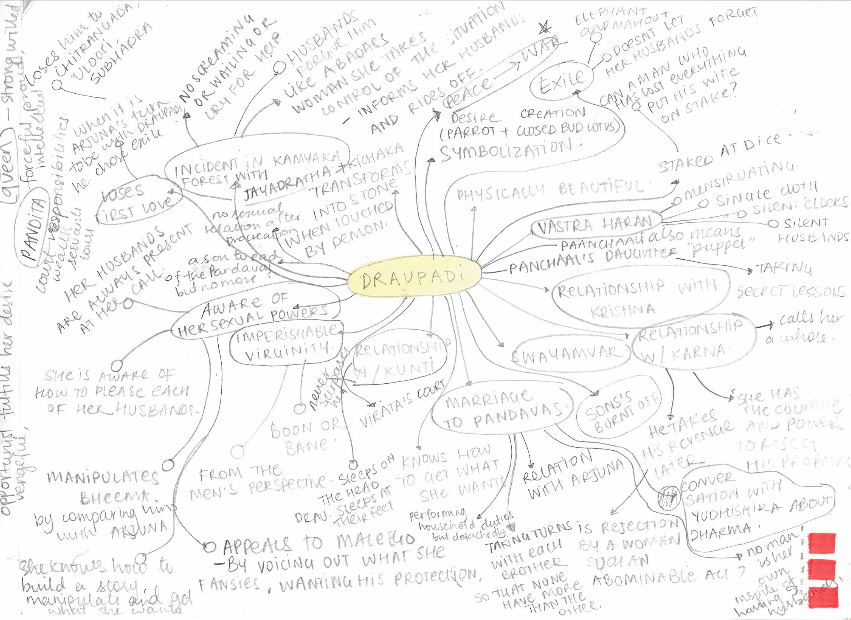 loses him to
CHITRANGADA,
ULOOPI,
SUBHADRA
when it is
ARJUNA'S turn
to be with DRAUPADI
he chose exile
LOSES
FIRST LOVE
NO SCREAMING
OR WAILING OR
CRY FOR HELP
HUSBANDS
FORSAKE HIM
LIKE A BADASS
WOMAN SHE TAKES
CONTROL OF THE SITUATION
- INFORMS HER HUSBANDS
AND RIDES OFF.
INCIDENT IN KAMYAKA
FOREST WITH
JAYADRATHA + KICHAKA
TRANSFORMS
INTO STONE
WHEN TOUCHED
BY DEMON.
no sexual
relation after
procreation
a son to each
of the Pandavas
but no more
PEACE → WAR
EXILE
ELEPHANT
AND MAHOUT
DOESN'T LET
HER HUSBANDS FORGET
CAN A MAN WHO
HAS LOST EVERYTHING
PUT HIS WIFE
ON STAKE?
DESIRE CREATION
(PARROT + CLOSED BUD LOTUS)
SYMBOLIZATION.
PHYSICALLY BEAUTIFUL.
STAKED AT DICE
MENSTRUATING
SINGLE CLOTH
SILENT ELDERS
SILENT
HUSBANDS
VASTRA HARAN
PAANCHAALI also means
PANCHAAL'S DAUGHTER "puppet"
DRAUPADI
RELATIONSHIP WITH
KRISHNA
TAKING
SECRET LESSONS
RELATIONSHIP
W/ KARNA
calls her
a whore.
SHE HAS
THE COURAGE
AND POWER
TO REJECT
HIS PROPOSAL
HE TAKES
HIS REVENGE
LATER
SWAYAMVAR
SONS'S
BURNT OFF
MARRIAGE
TO PANDAVAS.
CONVER
SATION WITH
YUDHISHIRA ABOUT
DHARMA.
no man
is her
own
inspite of
having 5
husbands.
KNOWS HOW
TO GET WHAT
SHE WANTS
performing
household duties
but detachedly
RELATION
WITH ARJUNA
TAKING TURNS
WITH EACH
BROTHER
SO THAT NONE
HAVE MORE
THAN THE
OTHER.
IS REJECTION
BY A WOMAN
SUCH AN
ABOMINABLE ACT?
RELATIONSHIP
W/ KUNTI
VIRATA'S COURT
SLEEPS ON
THE HEAD
DRAU. SLEEPS AT
THEIR FEET
IMPERISHABLE
VIRGINITY.
BOON OR
BANE.
FROM THE
MEN'S PERSPECTIVE.
AWARE OF
HER SEXUAL POWERS
HER HUSBANDS
ARE ALWAYS PRESENT
AT HER CALL
SHE IS AWARE OF
HOW TO PLEASE EACH
OF HER HUSBANDS.
MANIPULATES
BHEEMA.
by comparing him
with ARJUNA
she knows how to
build a story,
manipulate and get
what she wants
APPEALS TO MALE EGO
- BY VOICING OUT WHAT SHE
FANSIES, WANTING HIS PROTECTION,
PANDITA
(queen) - strong willed
forceful, proud,
intellectual
court responsibilities
wealth
servants
opportunist fulfills her desire
vengeful,